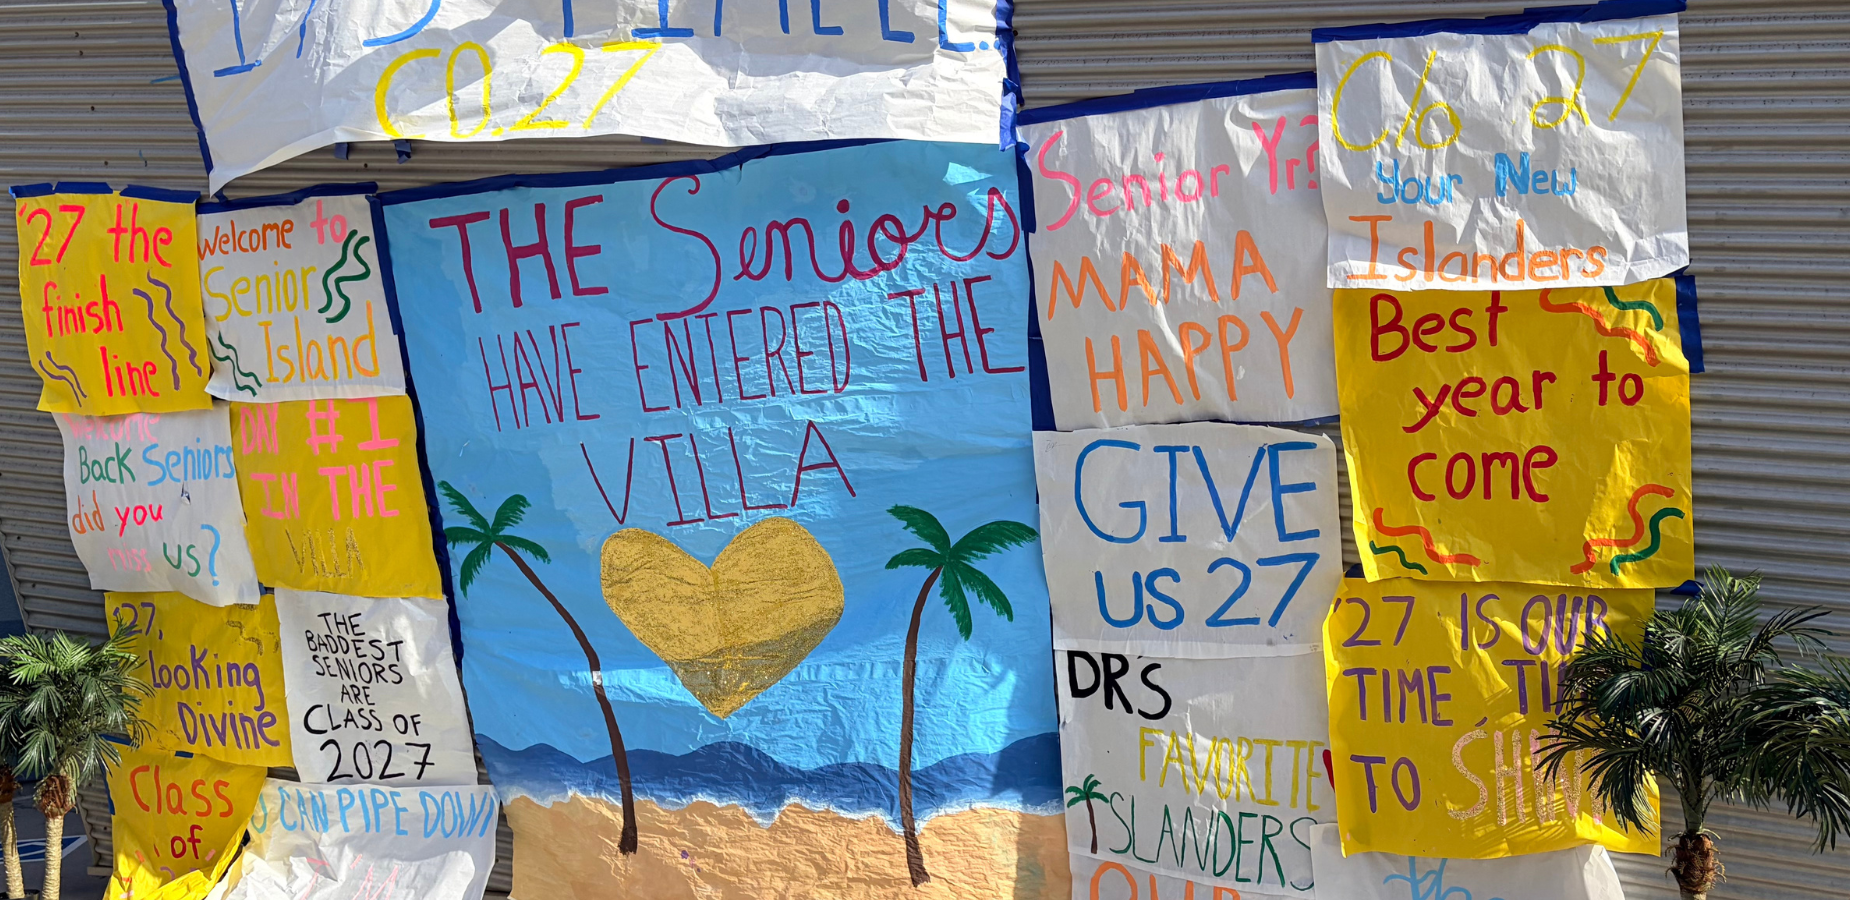 CO.27
'27 the
finish
line
Welcome to
Senior
Island
Welcome
Back Seniors
did you
miss us?
DAY #1
IN THE
VILLA
'27,
Looking
Divine
THE
BADDEST
SENIORS
ARE
CLASS OF
2027
Class
of
CAN PIPE DOWN
THE Seniors
HAVE ENTERED THE
VILLA
Senior Yr?
MAMA
HAPPY
GIVE
US 27
DR'S
FAVORITE
ISLANDERS
OUR
C/o 27
Your New
Islanders
Best
year to
come
'27 IS OUR
TIME,
TO